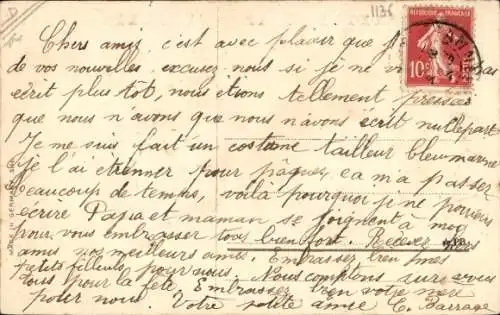 1136
REPUBLIQUE FRANÇAISE
10c
Chers amis c'est avec plaisir que j'
de vos nouvelles, excusez nous si je ne vous pas
écrit plus tôt, nous étions tellement pressées
que nous n'avons que nous n'avons écrit nullepart
Je me suis fait un costume tailleur bleu marine
je l'ai étrenner pour pâques, ça m'a passer
beaucoup de temps, voilà pourquoi je ne pouvais
écrire Papa et maman se joignent à moi
pour vous embrasser tous bien fort. Recevez mes
amis nos meilleurs amies. Embrassez bien mes
petits filleuls pour nous. Nous comptons sur vous
tous pour la fête. Embrassez bien votre mère
pour nous. Votre petite amie C. Barrage
MADE IN GERMANY